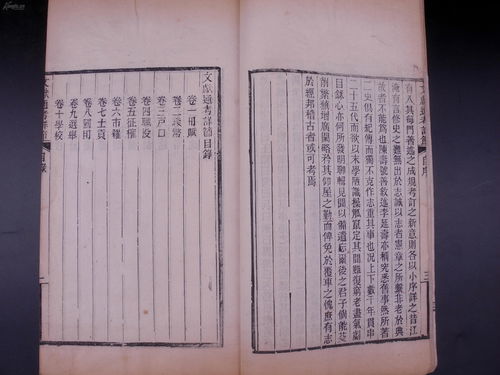 文獻通考詳節 自序 三
有八其每門著述之成規考訂之新意則各以小序詳之昔江
淹有言修史之難無出於志誠以志者憲章之所繫非老於典
故者不能爲也陳壽號善敘述李延壽亦稱究悉舊事然所著
二史俱有紀傳而獨不克作志重其事也況上下數千年貫串
二十五代而欲以末學陋識操觚竄定其間雖復窮老盡氣劌
目鉥心亦何所發明聊輯見聞以備遺忘爾後之君子儻能芟
削繁蕪增廣闕略矜其仰屋之勤而俾免於覆車之愧庶有志
於經邦稽古者或可考焉
文獻通考詳節目錄
卷一田賦
卷二錢幣
卷三戶口
卷四職役
卷五征榷
卷六市糴
卷七土貢
卷八國用
卷九選舉
卷十學校
文獻通考詳節 目錄 一